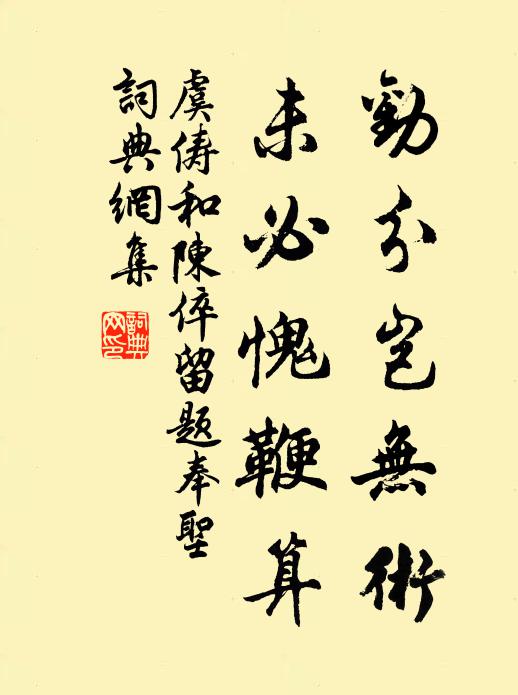 勸分豈無術
未必愧鞭算
虞俦和陳倅留題奉聖
詞典網集
詞典網印